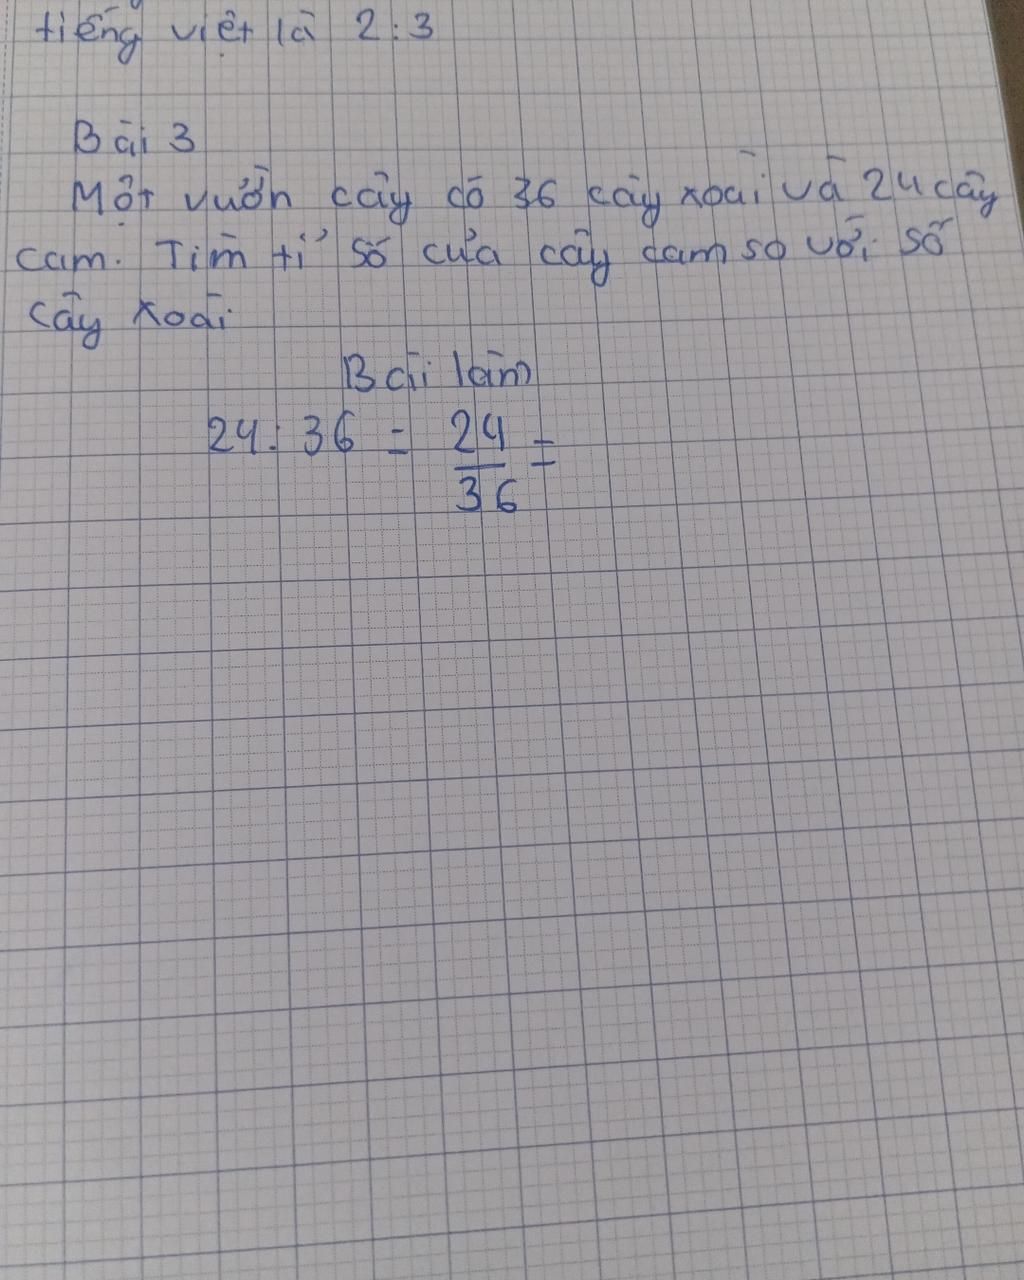 tiếng việt là 2:3
Bài 3
Một vườn cây có 36 cây xoài và 24 cây
cam. Tìm tỉ số của cây cam so với số
cây xoài
Bài làm
24 : 36 = 24/36 =